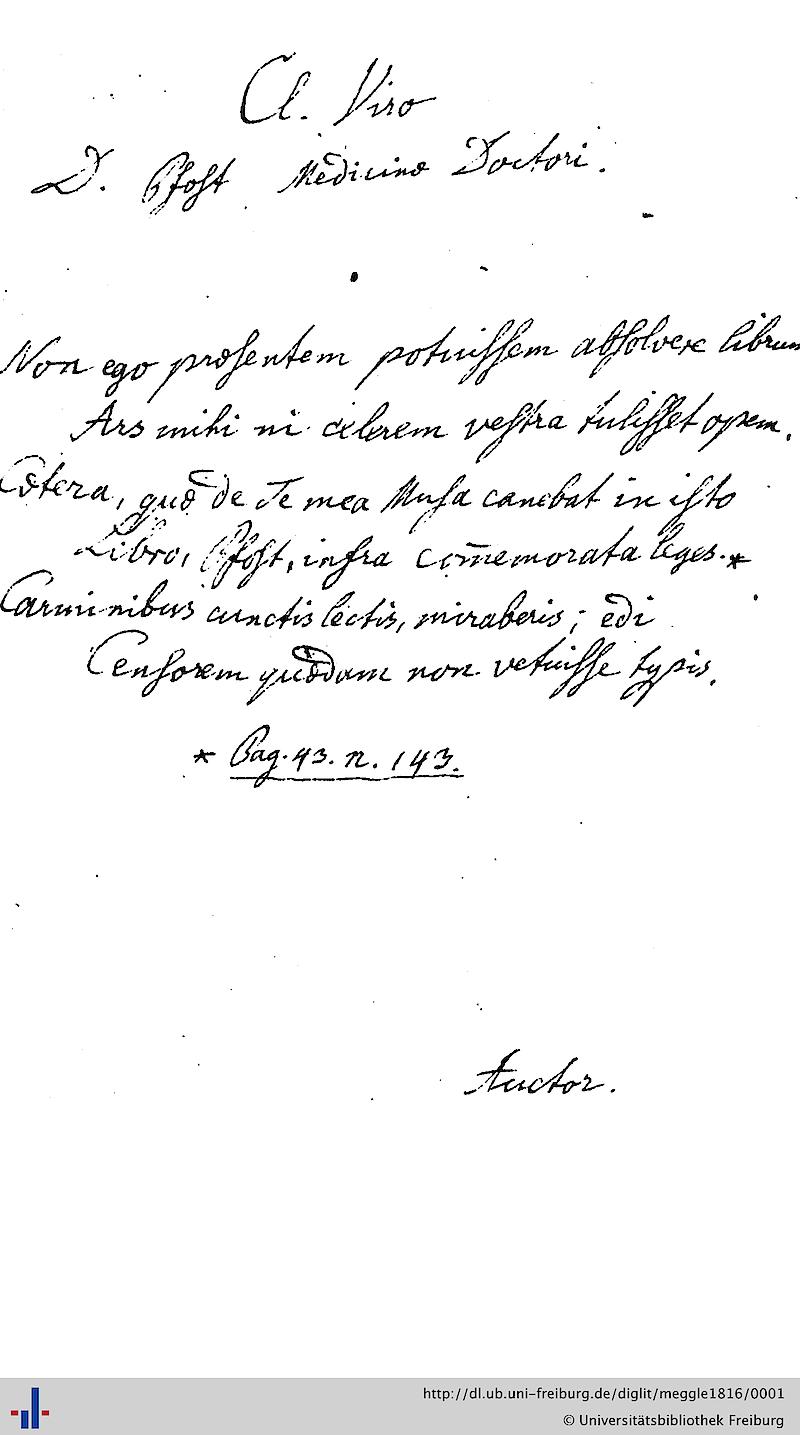 Cl. Viro
D. Pfost Medicinæ Doctori.
Non ego præsentem potuissem absolvere librum
Ars mihi ni celerem vestra tulisset opem.
Cætera, quæ de Te mea Musa canebat in isto
Libro, Pfost, infra com̄emorata leges.*
Carminibus cunctis lectis, miraberis; edi
Censorem quædam non vetuisse typis.
* Pag. 43. n. 143.
Auctor.
http://dl.ub.uni-freiburg.de/diglit/meggle1816/0001
© Universitätsbibliothek Freiburg